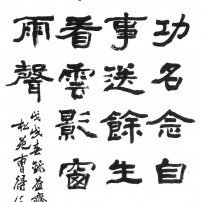 功名念自
事送餘生
看雲影窗
雨聲
戊戌春録益齋
松苑曹得